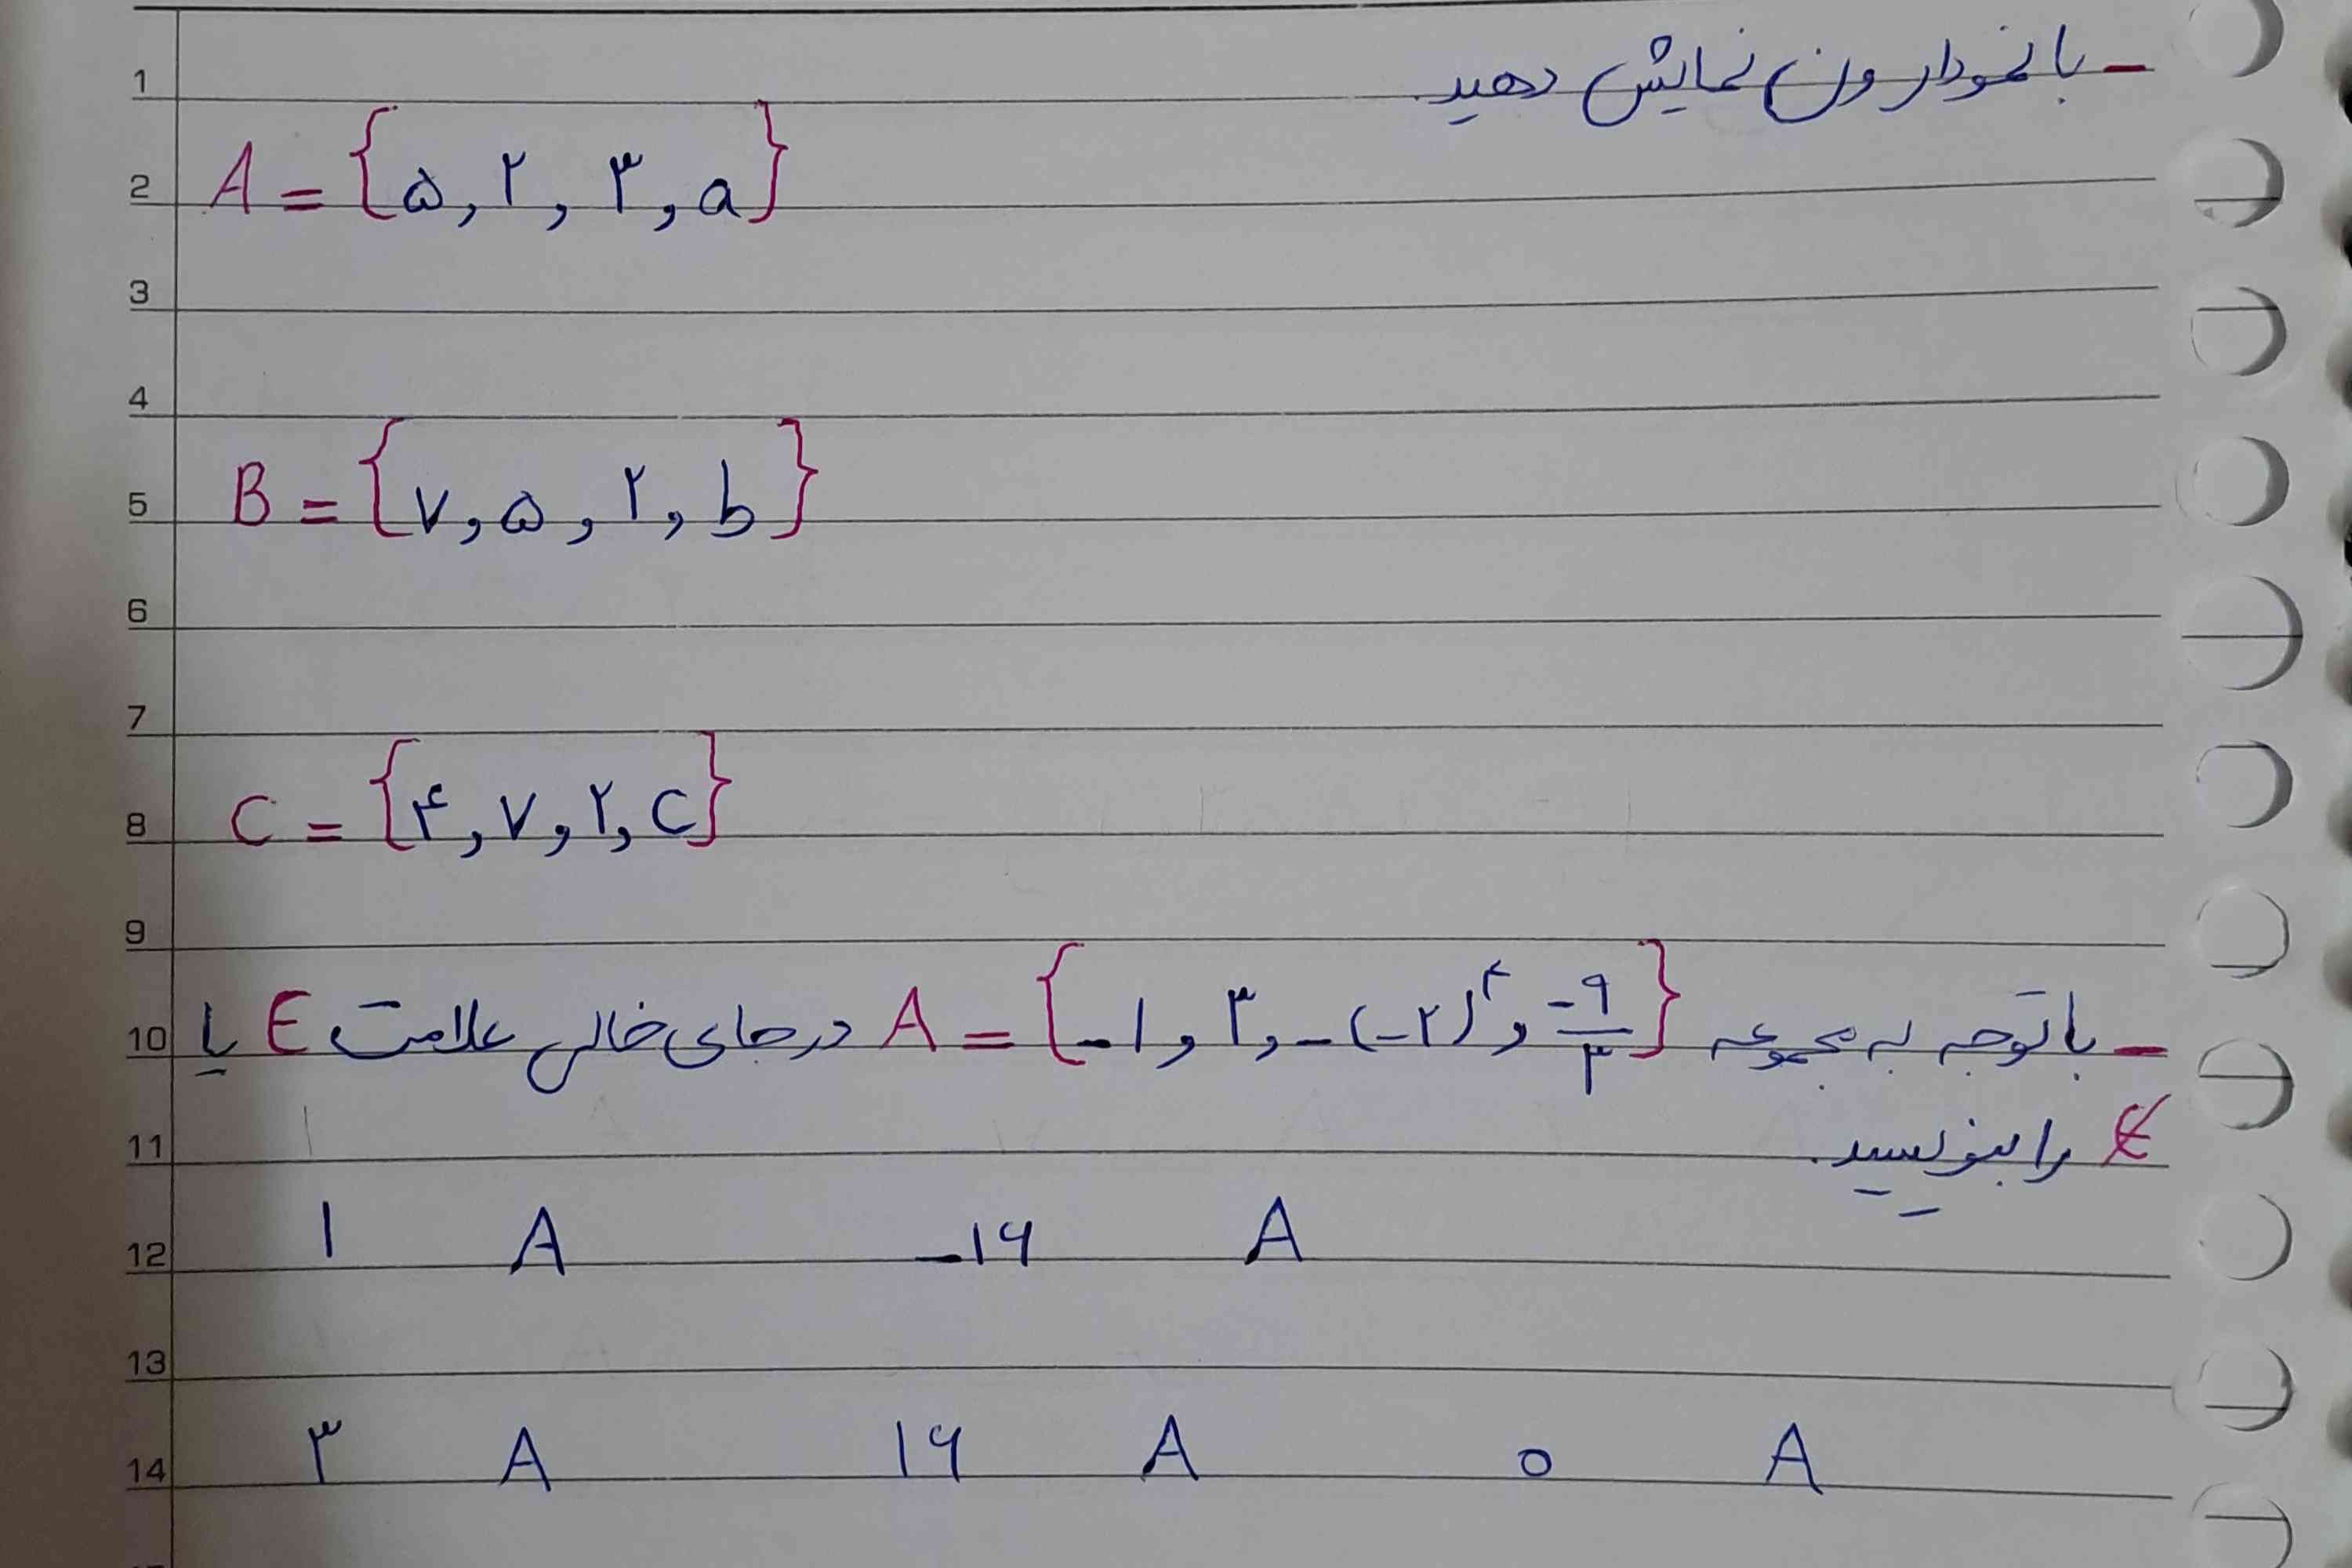 1
_ با نمودار ون نمایش دهید.
2 A = {۵, ۲, ۳, a}
3
4
5 B = {۷, ۵, ۲, b}
6
7
8 C = {۴, ۷, ۲, c}
9
10 _ با توجه به مجموعه A = {-۱, ۳, -(-۲)^۴, -۹/۳} در جای خالی علامت ∈ یا
11 ∉ را بنویسید.
12 ۱ A -۱۶ A
13
14 ۳ A ۱۶ A ۰ A